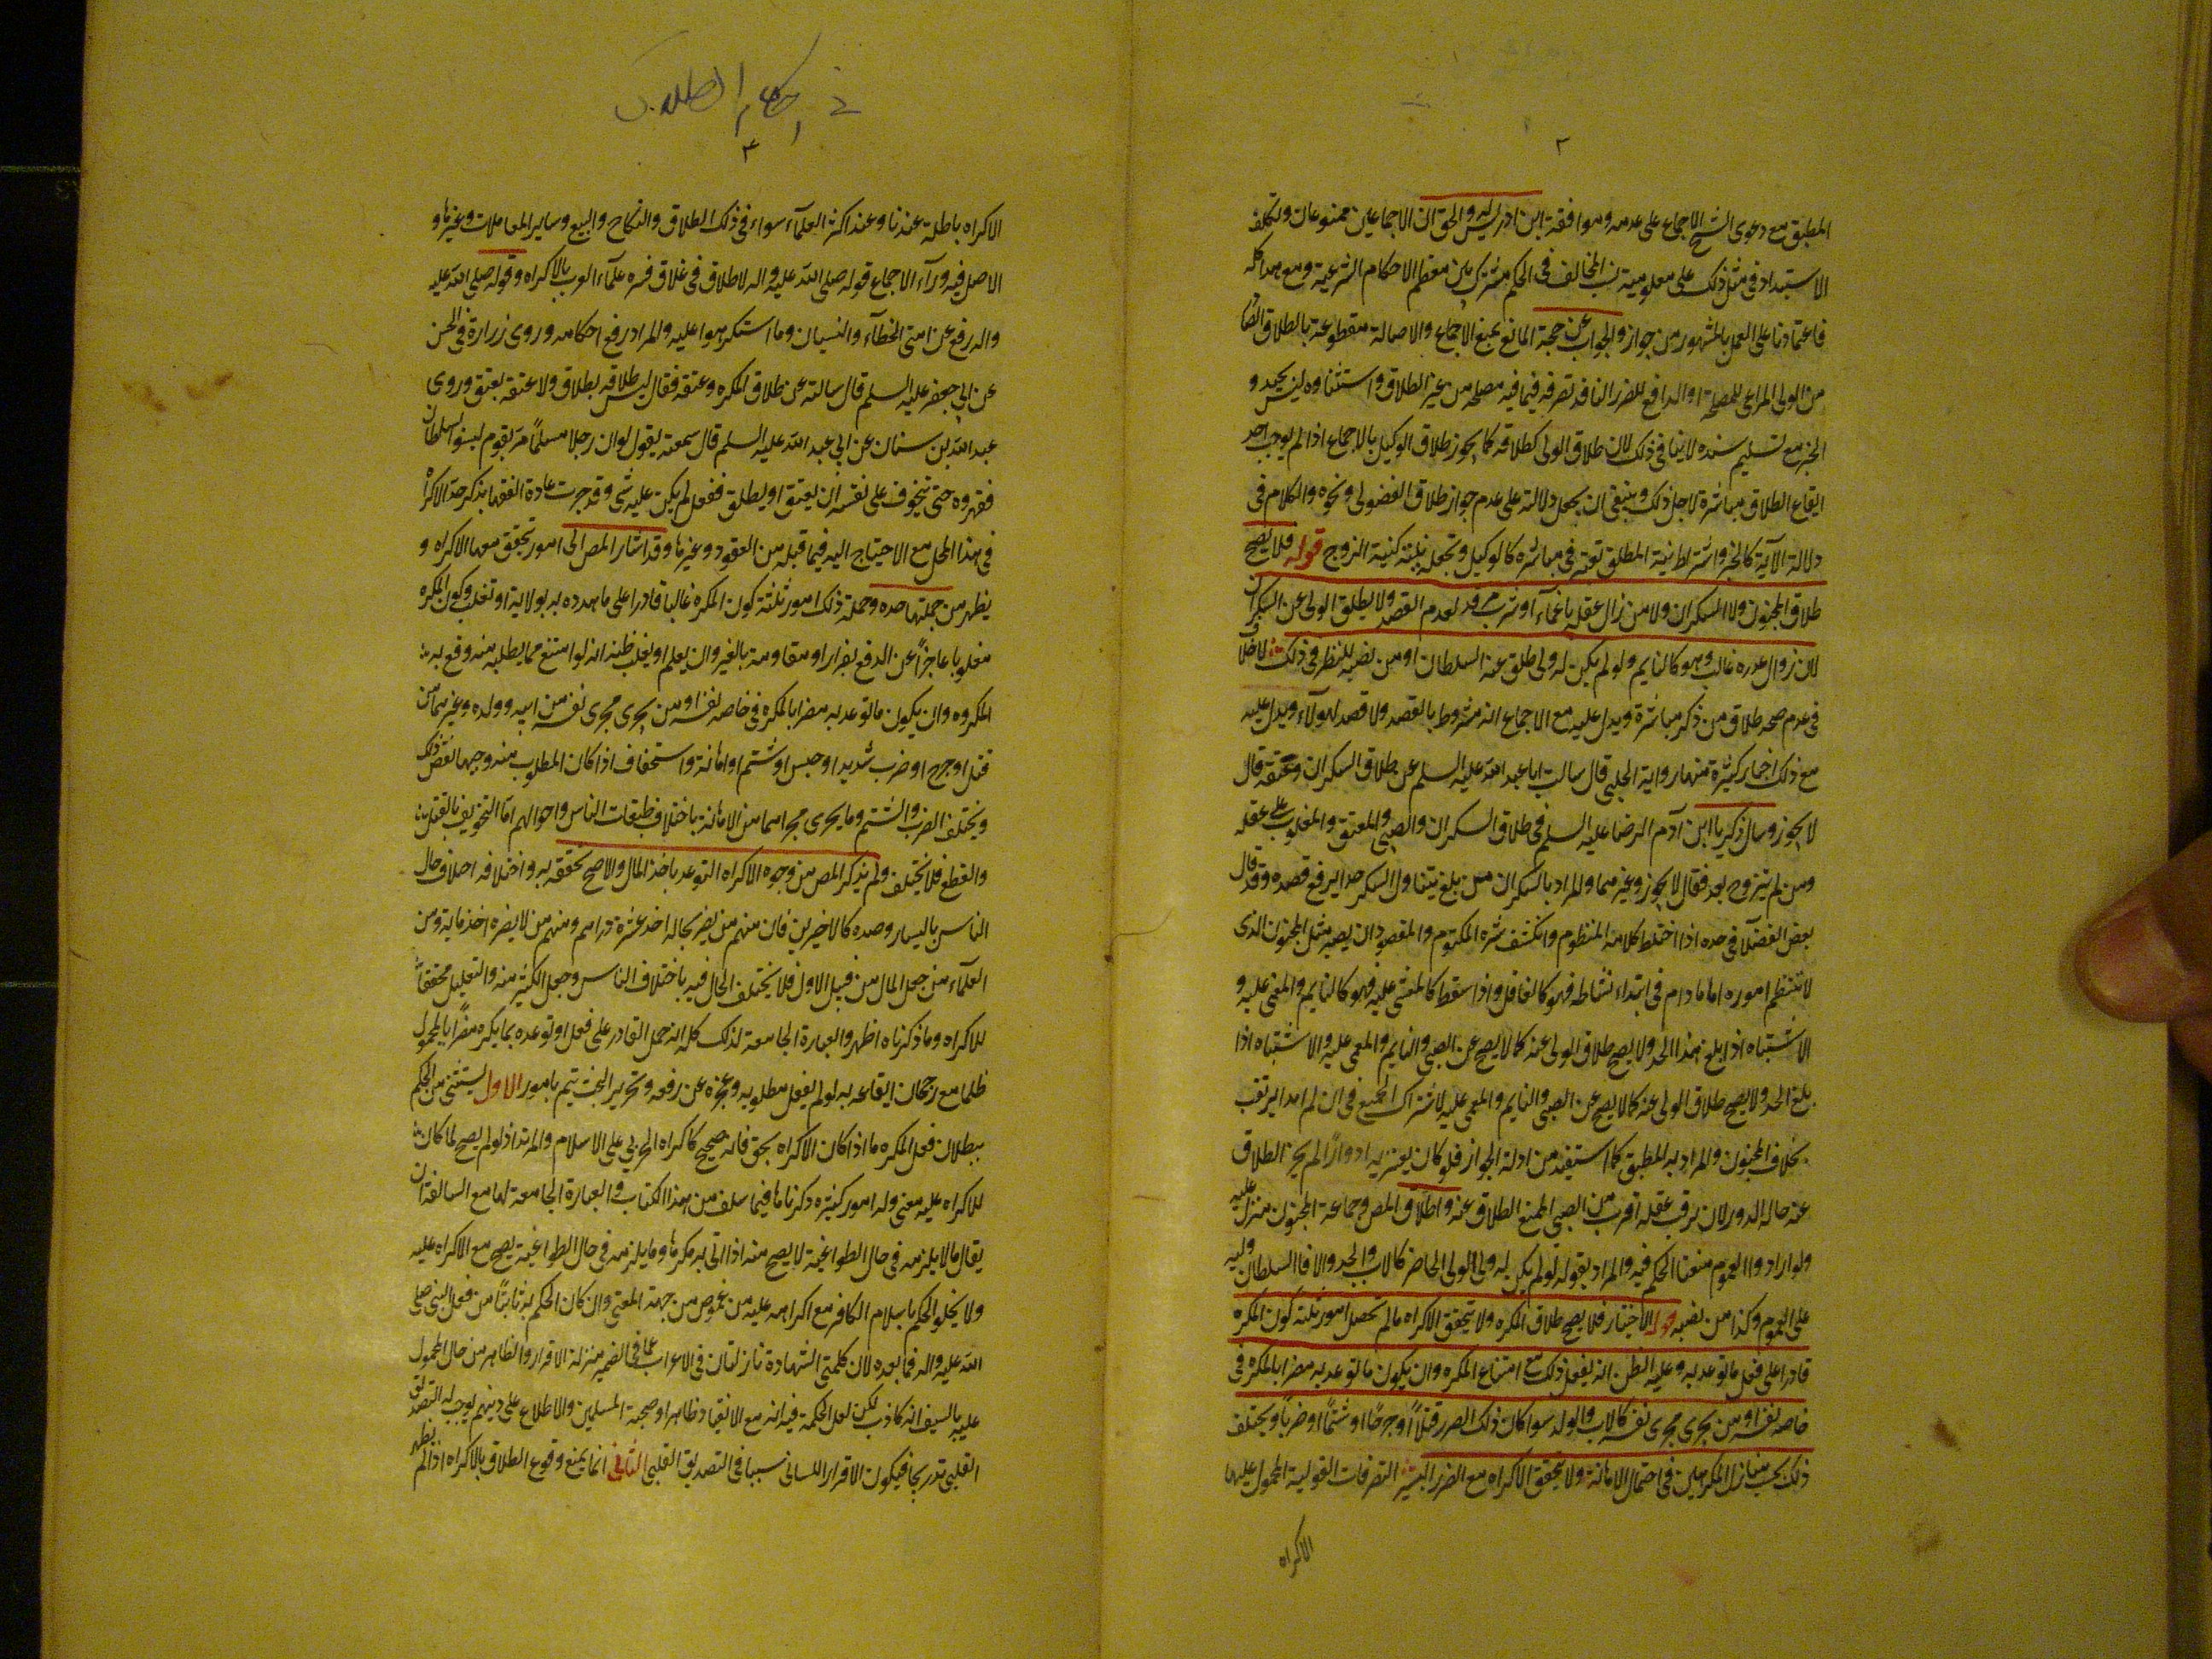 ٢
المطبق مع دعوى الشيخ الاجماع على عدمه وموافقة ابن ادريس له والحق ان الاجماعين ممنوعان وتكلف
الاستبداد في مثل ذلك على معلومية نسب المخالف في الحكم مشترك بين معظم الاحكام الشرعية ومع هذا كله
فاعتمادنا على العمل بالمشهور من جواز والجواب عن حجة المانع بمنع الاجماع والاصالة مقطوعة بالطلاق الصادر
من الولى المراعى للمصلحة او الدافع للضرر النافذ تصرفه فيما فيه مصلحة من غير الطلاق واستثناؤه ليس بجيد و
الخبر مع تسليم سنده لا ينافى ذلك لان طلاق الولى كطلاقه كما يجوز طلاق الوكيل بالاجماع اذ لم يوجب احد
ايقاع الطلاق مباشرة لاجل ذلك وينبغى ان يجعل دلالته على عدم جواز طلاق الفضولى ونحوه والكلام فى
دلالة الآية كالخبر واشتراط نية المطلق تعتبر فى مباشره كالوكيل وتجعل نيته كنية الزوج قوله فلا يصح
طلاق المجنون ولا السكران ولا من زال عقله باغماء او شرب مرقد لعدم القصد ولا يطلق الولى عن السكران
لان زوال عذره غالب وهو كالنايم ولو لم يكن له ولى طلق عنه السلطان او من نصبه للنظر فى ذلك لا خلاف
فى عدم صحة طلاق من ذكر مباشرة ويدل عليه مع الاجماع انه مشروط بالقصد ولا قصد لهولاء ويدل عليه
مع ذلك اخبار كثيرة منها رواية الحلبى قال سالت ابا عبد الله عليه السلم عن طلاق السكران وعتقه قال
لا يجوز وسال زكريا ابن آدم الرضا عليه السلم فى طلاق السكران والصبى والمعتوه والمغلوب على عقله
ومن لم يتزوج بعد فقال لا يجوز وغيرهما والمراد بالسكران من بلغ بتناول المسكر حدا يرفع قصده وقد قال
بعض الفضلا فى حده اذا اختلط كلامه المنظوم وانكشف سره المكتوم والمقصود ان يصير مثل المجنون الذى
لا تنتظم اموره اما ما دام فى ابتداء نشاطه فهو كالغافل واذا سقط كالمغشى عليه فهو كالنايم والمغمى عليه و
الاشتباه اذا بلغ هذا الحد ولا يصح طلاق الولى عنه كما لا يصح عن الصبى والنايم والمغمى عليه والاشتباه اذا
بلغ الحد ولا يصح طلاق الولى عنه كما لا يصح عن الصبى والنايم والمغمى عليه لاشتراك الجميع فى ان لهم امدا يرتقب
بخلاف المجنون والمراد به المطبق كما استفيد من ادلة الجواز فلو كان يعتريه ادوارا لم يجز الطلاق
عنه حالة الدور لان ترقب عقله اقرب من الصبى الممنع الطلاق عنه واطلاق المص وجماعة المجنون منزل عليه
ولو ارادوا العموم منعنا الحكم فيه والمراد بقوله لو لم يكن له ولى الولى الخاص كالاب والجد والا فالسلطان وليه
على العموم وكذا من نصبه قوله الاختيار فلا يصح طلاق المكره ولا يتحقق الاكراه ما لم تحصل امور ثلثة كون المكره
قادرا على فعل ما توعد به وغلبة الظن انه يفعل ذلك مع امتناع المكره وان يكون ما توعد به مضرا بالمكره فى
خاصة نفسه او من يجرى مجرى نفسه كالاب والولد سوا كان ذلك الضرر قتلا او جرحا او شتما او ضربا ويختلف
ذلك بحسب منازل المكرهين فى احتمال الاهانة ولا يتحقق الاكراه مع الضرر اليسير التصرفات القولية المحمول عليها
الاكراه
فى احكام الطلاق
٣
الاكراه باطلة عندنا وعند اكثر العلماء سواء فى ذلك الطلاق والنكاح والبيع وساير المعاملات وغيرها و
الاصل فيه وراء الاجماع قوله صلى الله عليه واله لا طلاق فى غلاق فسره علماء العرب بالاكراه وقوله صلى الله عليه
واله رفع عن امتى الخطاء والنسيان وما استكرهوا عليه والمراد رفع احكامه وروى زرارة فى الحسن
عن ابى جعفر عليه السلم قال سالته عن طلاق المكره وعتقه فقال ليس طلاقه بطلاق ولا عتقه بعتق وروى
عبد الله بن سنان عن ابى عبد الله عليه السلم قال سمعته يقول لو ان رجلا مسلما مر بقوم ليسوا بسلطان
فقهروه حتى يتخوف على نفسه ان يعتق او يطلق ففعل لم يكن عليه شئ وقد جرت عادة الفقها بذكر حد الاكراه
فى هذا المحل مع الاحتياج اليه فيما قبله من العقود وغيرها وقد اشار المص الى امور تحقق معها الاكراه و
يظهر من جملتها حده وجملة ذلك امور ثلثة كون المكره غالبا قادرا على ما هدده به بولاية او تغلب وكون المكره
مغلوبا عاجزا عن الدفع بفرار او مقاومة بالغير وان يعلم او يغلب ظنه انه لو امتنع مما يطلبه منه وقع به
المكروه وان يكون ما توعد به مضرا بالمكره فى خاصة نفسه او من يجرى مجرى نفسه من ابيه وولده وغيرهما من
قتل او جرح او ضرب شديد او حبس او شتم او اهانة واستخفاف اذا كان المطلوب منه وجيها لغض ذلك
ويختلف الضرب والشتم وما يجرى مجراهما من الاهانة باختلاف طبقات الناس واحوالهم اما التخويف بالقتل
والقطع فلا يختلف ولم يذكر المص من وجوه الاكراه التوعد باخذ المال والاصح تحققه به واختلافه اختلاف حال
الناس باليسار وضده كالاخيرين فان منهم من يضر بحاله اخذ عشرة دراهم ومنهم من لا يضره اخذ ماية ومن
العلماء من جعل المال من قبيل الاول فلا يختلف الحال فيه باختلاف الناس وجعل الكثير منه والقليل محققا
للاكراه وما ذكرناه اظهر والعبارة الجامعة لذلك كله انه حمل القادر على فعل او توعده بما يكره مضرا بالمحمول
ظلما مع رجحان ايقاعه به لو لم يفعل مطلوبه وعجزه عن رفعه وتحرير البحث يتم بامور الاول يستثنى من الحكم
ببطلان فعل المكره ما اذا كان الاكراه بحق فانه صحيح كاكراه الحربى على الاسلام والمرتد اذ لو لم يصح لما كان
للاكراه عليه معنى وله امور كثيرة ذكرناها فيما سلف من هذا الكتاب والعبارة الجامعة لها مع السالفة ان
يقال ما لا يلزمه فى حال الطواعية لا يصح منه اذا اتى به مكرها وما يلزمه فى حال الطواعية يصح مع الاكراه عليه
ولا يخلو الحكم باسلام الكافر مع اكراهه عليه من غموض من جهة المعنى وان كان الحكم به ثابتا من فعل النبى صلى
الله عليه واله فما بعده لان كلمتى الشهادة نازلتان فى الاعراب عما فى الضمير منزلة الاقرار والظاهر من حال المحمول
عليه بالسيف انه كاذب لكن لعل الحكمة فيه انه مع الانقياد ظاهرا وصحبة المسلمين والاطلاع على دينهم يوجب له التصديق
القلبى تدريجا فيكون الاقرار اللسانى سببا فى التصديق القلبى الثانى انما يمنع وقوع الطلاق بالاكراه اذا لم يظهر